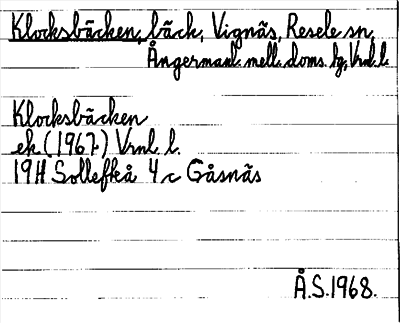 Klocksbäcken, bäck, Vignäs, Resele sn,
Ångermanl. mell. doms. hg, Vrnl. l.
Klocksbäcken
ek. (1967) Vrnl. l.
19H Sollefteå 4 c Gåsnäs
Å.S.1968.